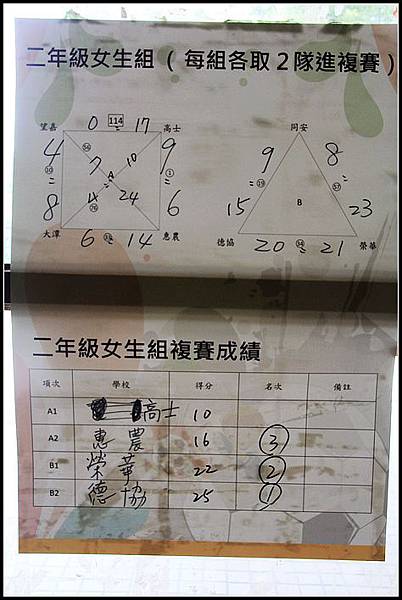 二年級女生組（每組各取2隊進複賽）
望嘉 0 114 17 高士
同安
4 56 9
9 8
7 10
10 A 1
19 37
B
8 24 6
76
15 23
大潭 6 14 惠農
德協 20 21 榮華
二年級女生組複賽成績
項次 學校 得分 名次 備註
A1 高士 10
A2 惠農 16 3
B1 榮華 22 2
B2 德協 25 1